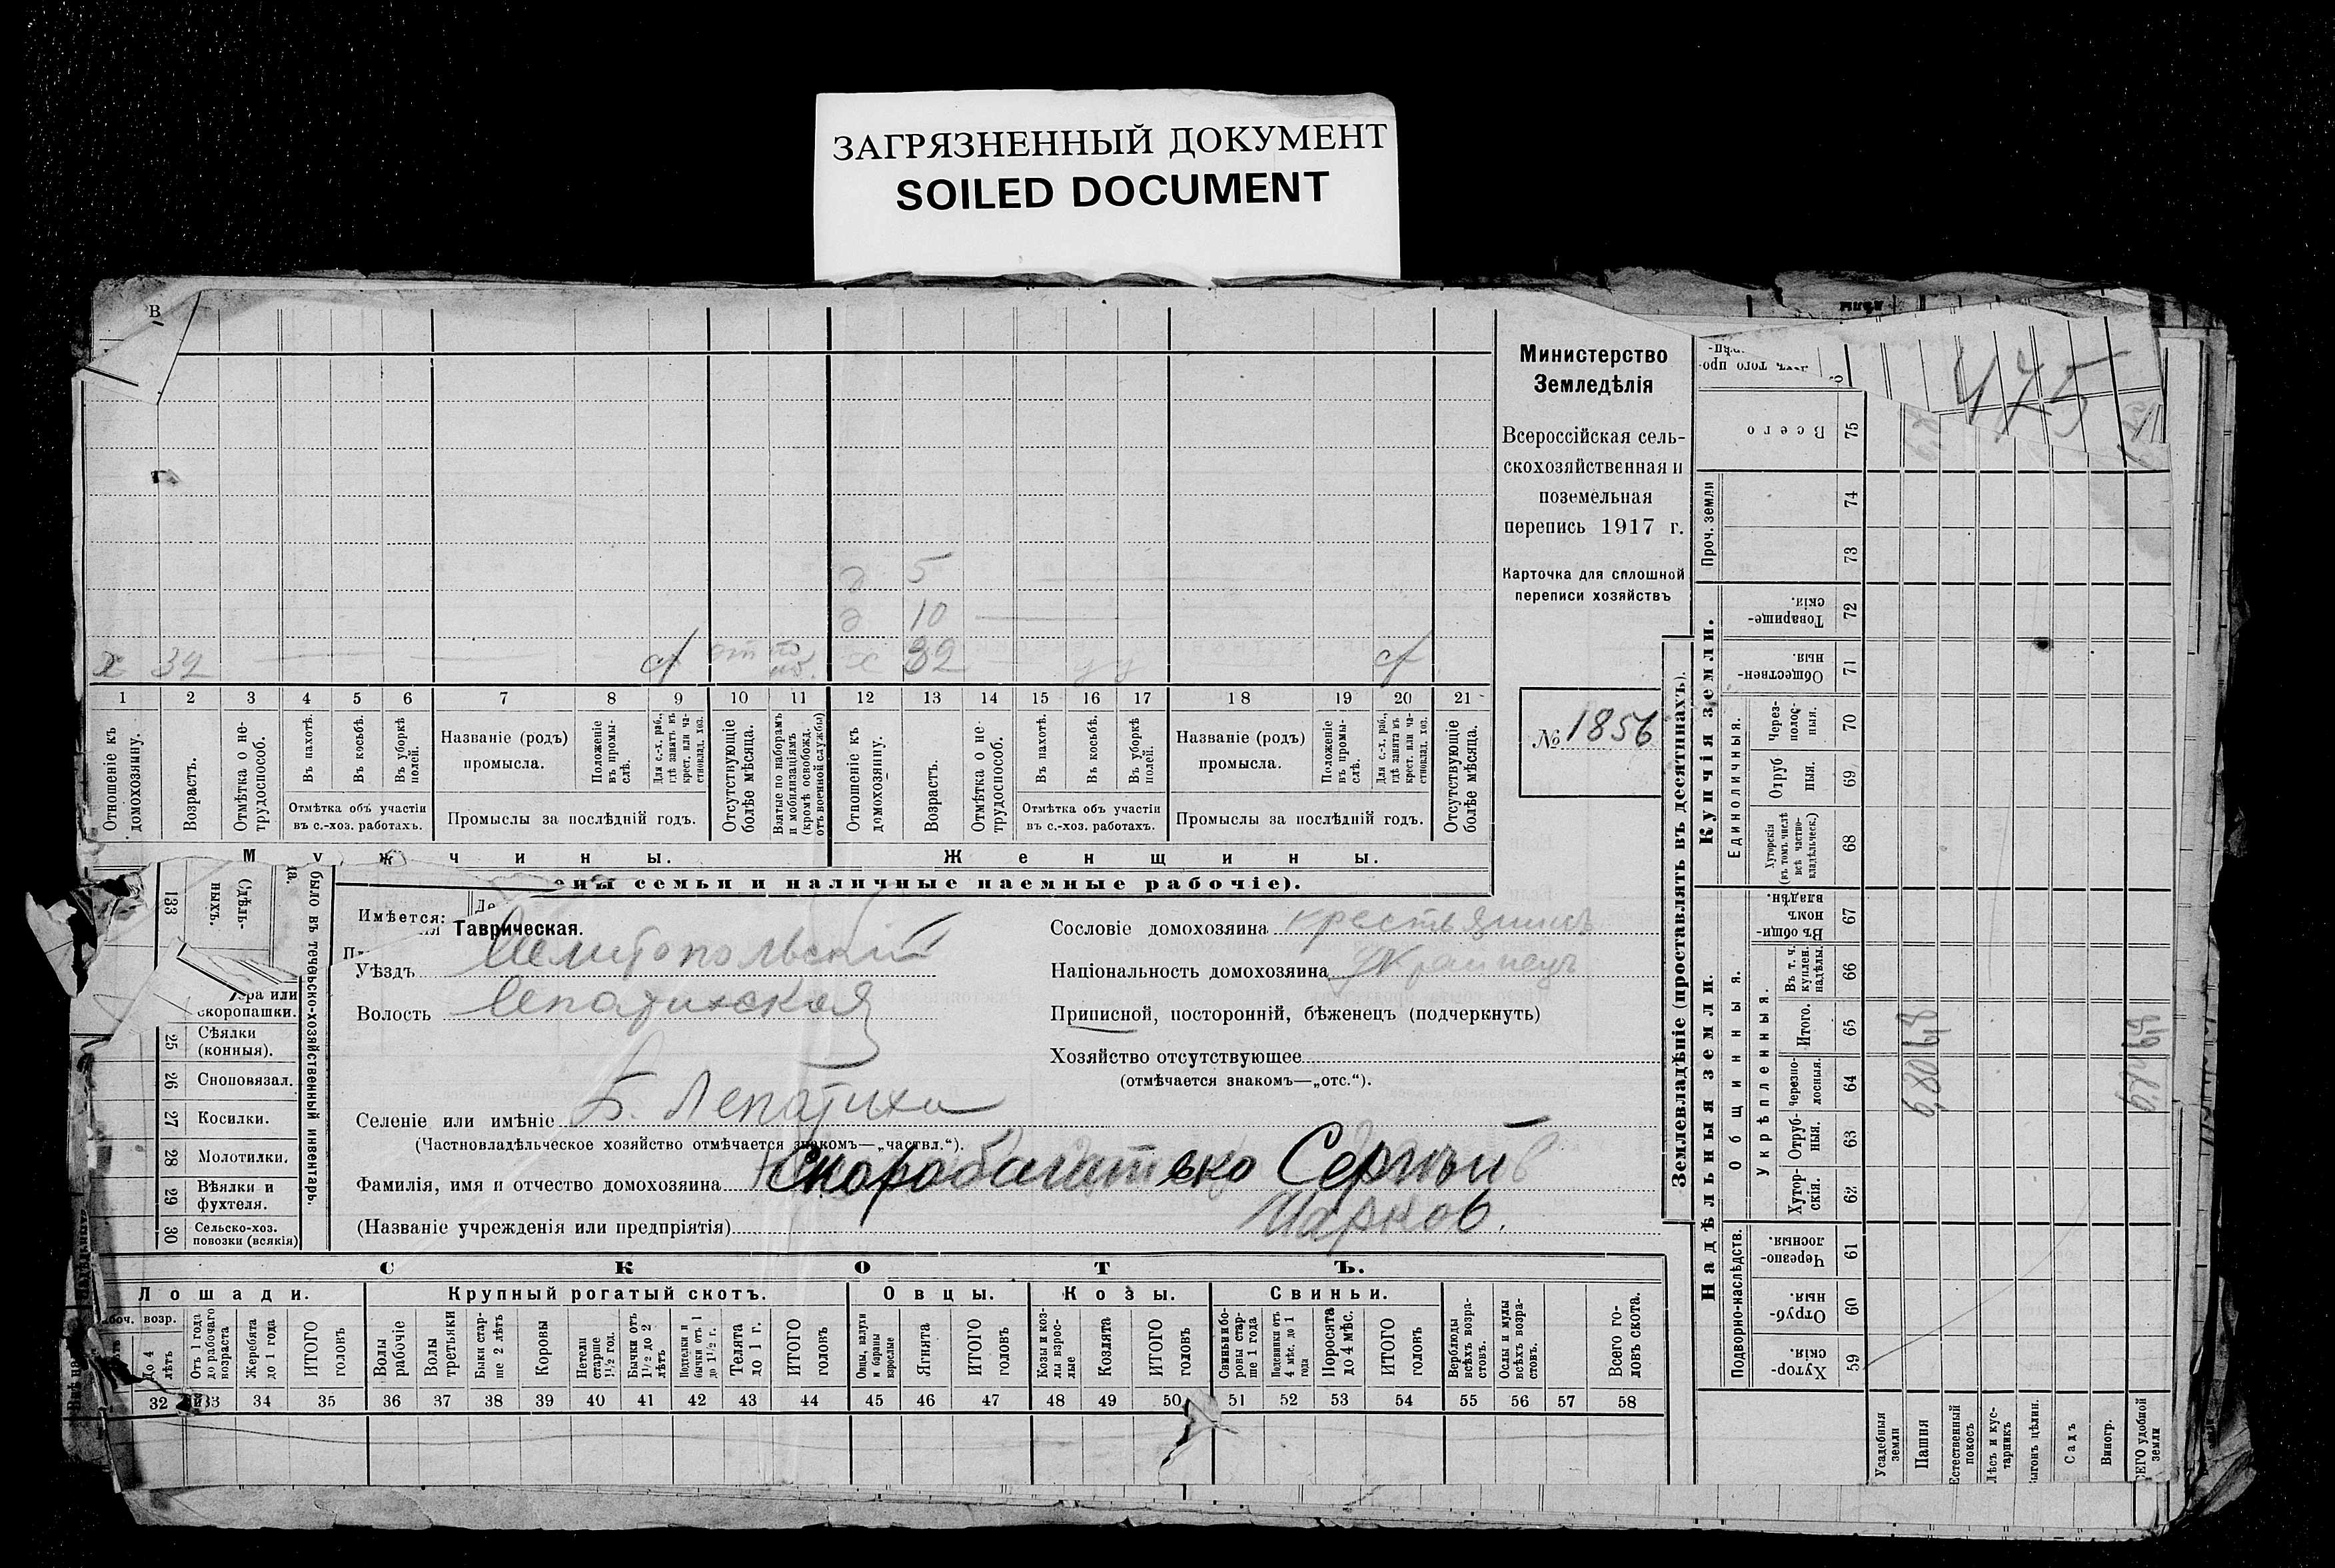 ЗАГРЯЗНЕННЫЙ ДОКУМЕНТ
SOILED DOCUMENT
В
475
д 5
д 10
х 32 х 32
1 2 3 4 5 6 7 8 9 10 11 12 13 14 15 16 17 18 19 20 21
Отношеніе къ домохозяину.
Возрастъ.
Отмѣтка о нетрудоспособ.
Въ пахотѣ.
Въ косьбѣ.
Въ уборкѣ полей.
Отмѣтка объ участіи
въ с.-хоз. работахъ.
Названіе (родъ)
промысла.
Положеніе въ промыслѣ.
Для с.-х. раб., гдѣ занятъ въ крест. или частновлад. хоз.
Промыслы за послѣдній годъ.
Отсутствующіе болѣе мѣсяца.
Взятые по наборамъ и мобилизаціямъ (кромѣ освобожд. отъ военной службы)
Отношеніе къ домохозяину.
Возрастъ.
Отмѣтка о нетрудоспособ.
Въ пахотѣ.
Въ косьбѣ.
Въ уборкѣ полей.
Отмѣтка объ участіи
въ с.-хоз. работахъ.
Названіе (родъ)
промысла.
Положеніе въ промыслѣ.
Для с.-х. раб., гдѣ занята въ крест. или частновлад. хоз.
Промыслы за послѣдній годъ.
Отсутствующіе болѣе мѣсяца.
Мужчины. Женщины.
семьи и наличные наемные рабочіе).
Министерство
Земледѣлія
Всероссійская сель-
скохозяйственная и
поземельная
перепись 1917 г.
Карточка для сплошной
переписи хозяйствъ
№ 1856
Имѣется:
Таврическая.
Уѣздъ Мелитопольскій
Волость Лепатихская
Селеніе или имѣніе Б. Лепатиха
(Частновладѣльческое хозяйство отмѣчается знакомъ—„частвл.“).
Фамилія, имя и отчество домохозяина Скоробагатько Сергѣй
Марков.
(Названіе учрежденія или предпріятія)
Сословіе домохозяина крестьянинъ
Національность домохозяина Украинецъ
Приписной, посторонній, бѣженецъ (подчеркнуть)
Хозяйство отсутствующее
(отмѣчается знакомъ—„отс.“).
133
скоропашки.
25 Сѣялки (конныя).
26 Сноповязал.
27 Косилки.
28 Молотилки.
29 Вѣялки и фухтеля.
30 Сельско-хоз. повозки (всякія)
СКОТЪ.
Лошади. Крупный рогатый скотъ. Овцы. Козы. Свиньи.
возр.
До 4 лѣтъ
Отъ 1 года до рабочаго возраста
Жеребята до 1 года
ИТОГО головъ
Волы рабочіе
Волы третьяки
Быки старше 2 лѣтъ
Коровы
Нетели старше 1½ год.
Бычки отъ 1½ до 2 лѣтъ
Подтелки и бычки отъ 1 до 1½ г.
Телята до 1 г.
ИТОГО головъ
Овцы, валухи и бараны взрослые
Ягнята
ИТОГО головъ
Козы и козлы взрослые
Козлята
ИТОГО головъ
Свиньи и боровы старше 1 года
Подсвинки отъ 4 мѣс. до 1 года
Поросята до 4 мѣс.
ИТОГО головъ
Верблюды всѣхъ возрастовъ.
Ослы и мулы всѣхъ возрастовъ.
Всего головъ скота.
32 33 34 35 36 37 38 39 40 41 42 43 44 45 46 47 48 49 50 51 52 53 54 55 56 57 58
Землевладѣніе (проставлять въ десятинахъ).
Купчія земли.
Надѣльныя земли.
Всего 75
Проч. земли 74 73
Товарищескія. 72
Общественныя. 71
Единоличныя.
Черезполосныя. 70
Отрубныя. 69
Хуторскія (въ томъ числѣ всѣ частновладѣльческ.) 68
Общинныя.
Въ общинномъ владѣн. 67
Укрѣпленныя.
Въ т. ч. куплен. надѣлы. 66
Итого. 65
Черезполосныя. 64
Отрубныя. 63
Хуторскія. 62
Подворно-наслѣдств.
Черезполосныя. 61
Отрубныя. 60
Хуторскія. 59
Усадебныя земли
Пашня
Естественный покосъ
Лѣсъ и кустарникъ
Садъ
Виногр.
удобной земли